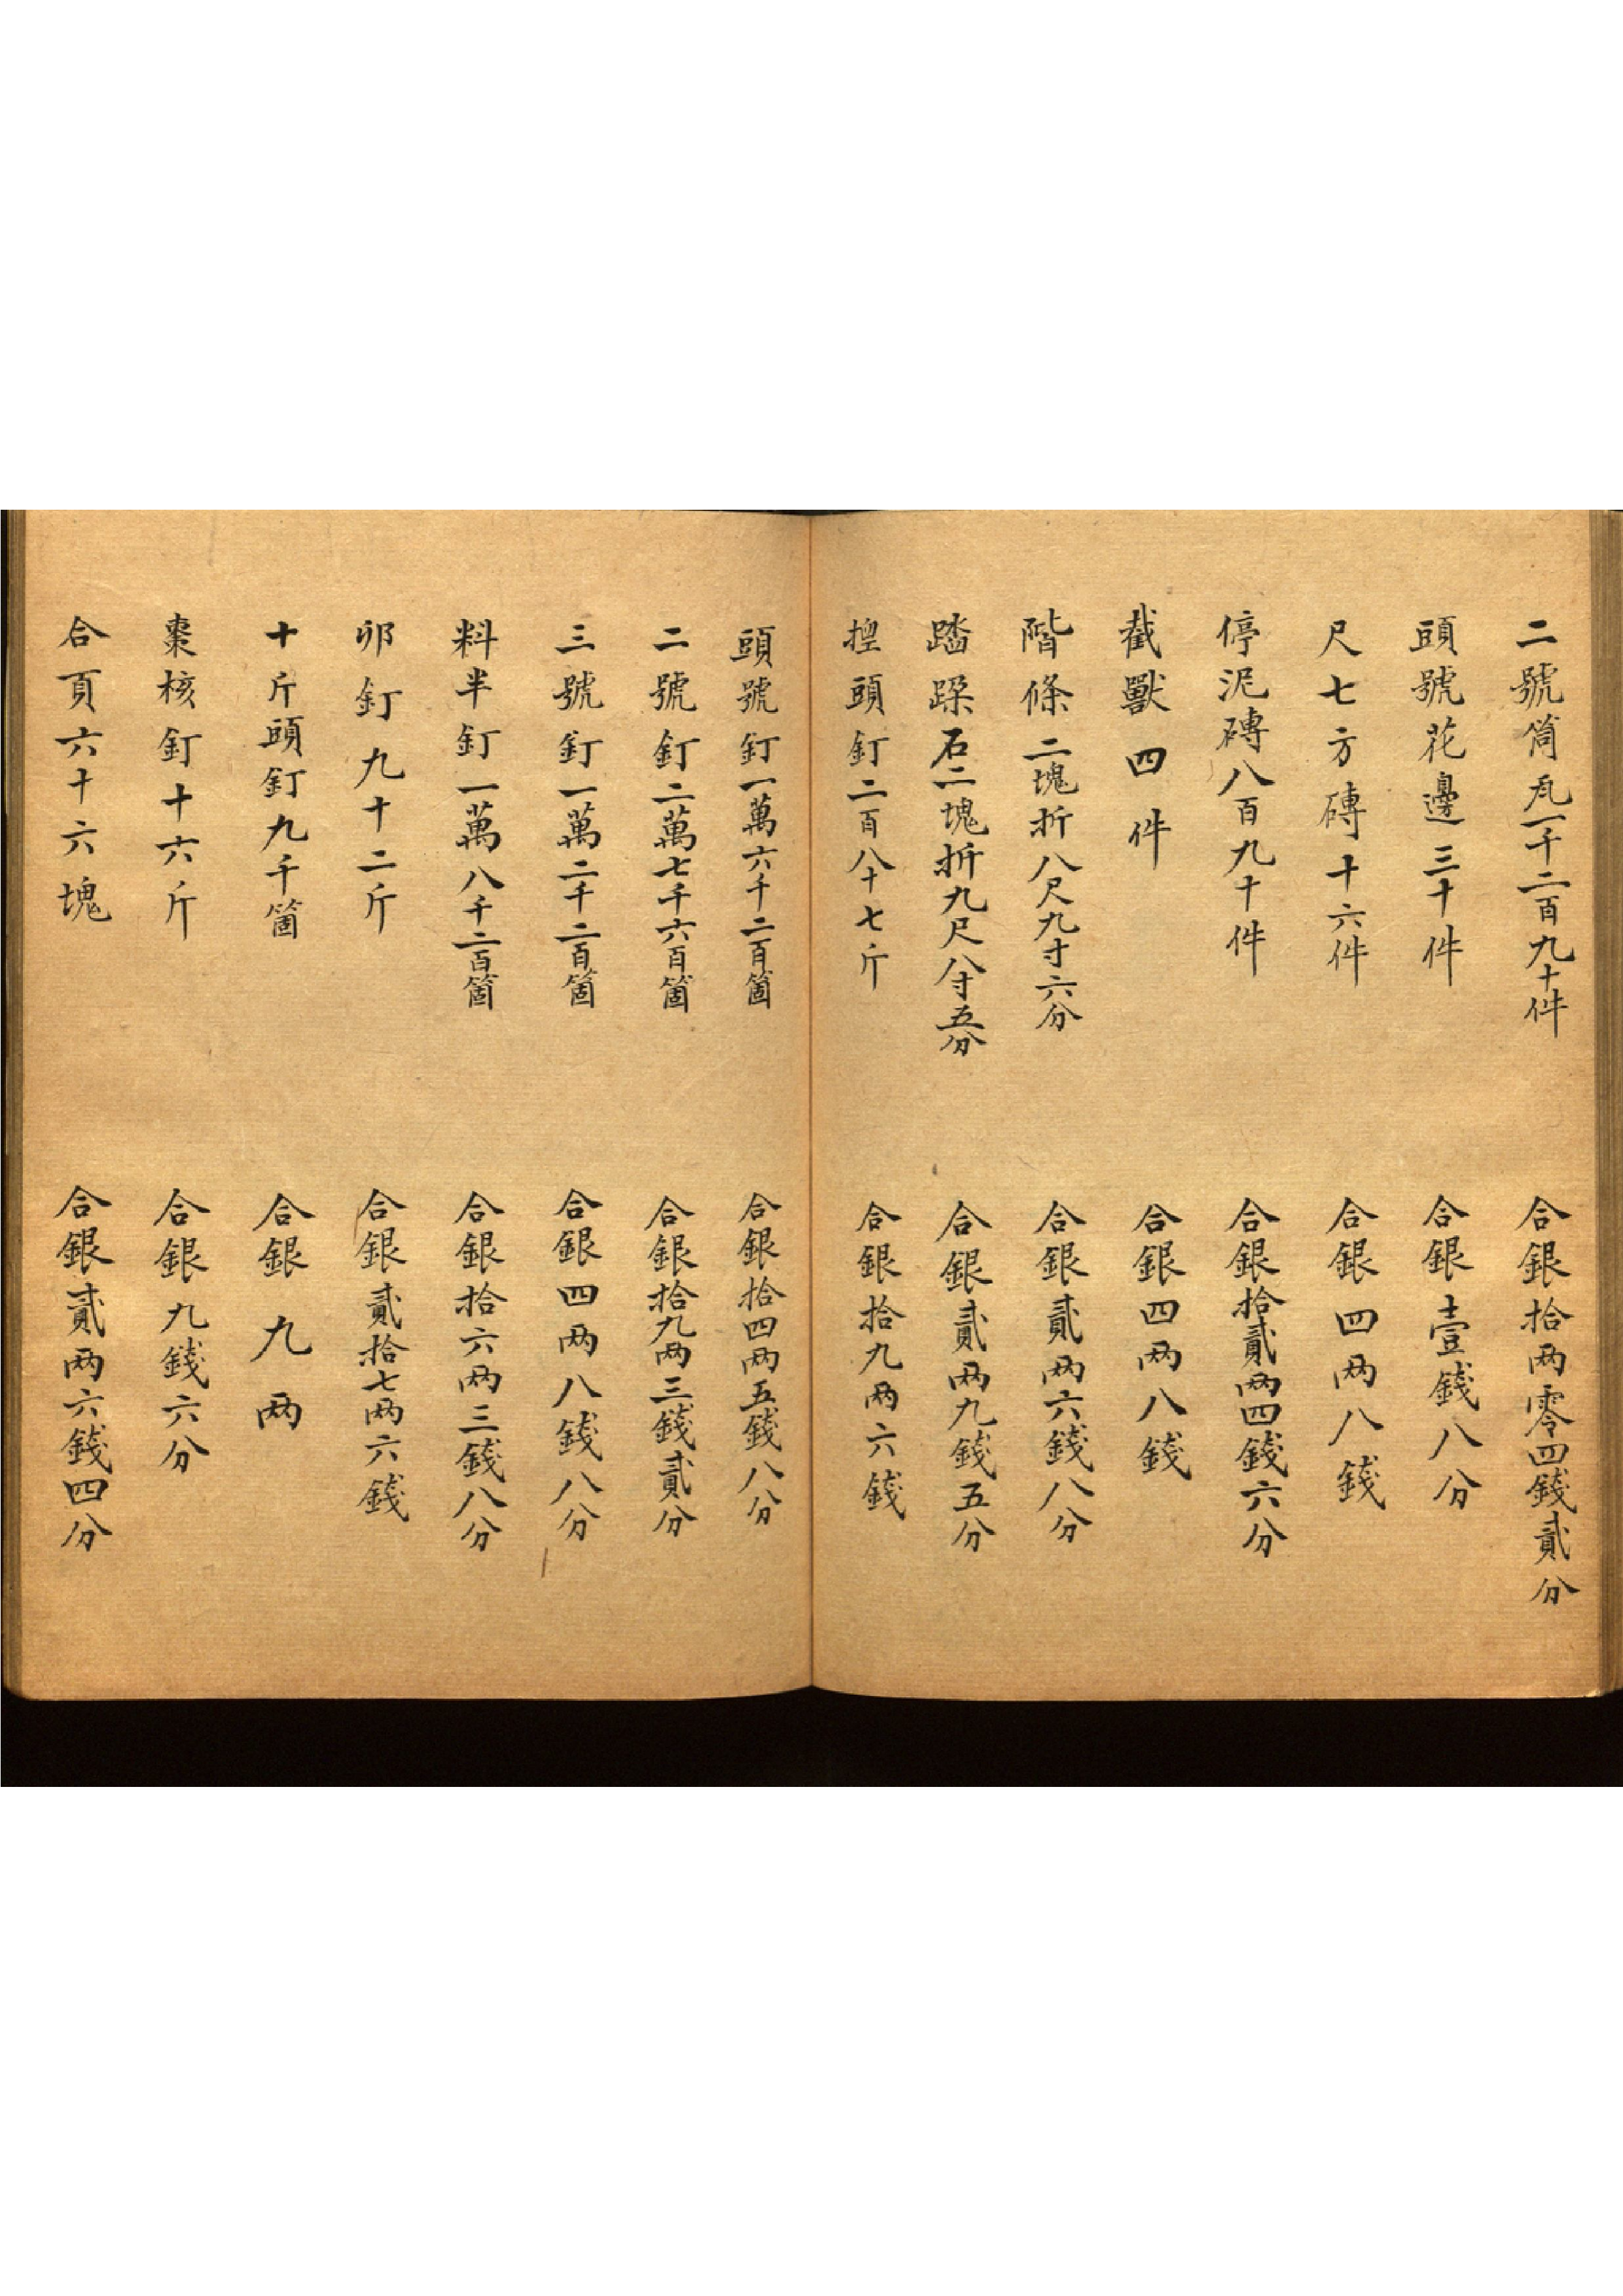 二號筒瓦一千二百九十件　合銀拾两零四錢貳分
頭號花邊三十件　合銀壹錢八分
尺七方磚十六件　合銀四两八錢
停泥磚八百九十件　合銀拾貳两四錢六分
截獸四件　合銀四两八錢
階條二塊折八尺九寸六分　合銀貳两六錢八分
踏跺石二塊折九尺八寸五分　合銀貳两九錢五分
頭釘二百八十七斤　合銀拾九两六錢
頭號釘一萬六千二百箇　合銀拾四两五錢八分
二號釘二萬七千六百箇　合銀拾九两三錢貳分
三號釘一萬二千二百箇　合銀四两八錢八分
料半釘一萬八千二百箇　合銀拾六两三錢八分
卯釘九十二斤　合銀貳拾七两六錢
十斤頭釘九千箇　合銀九两
棗核釘十六斤　合銀九錢六分
合頁六十六塊　合銀貳两六錢四分